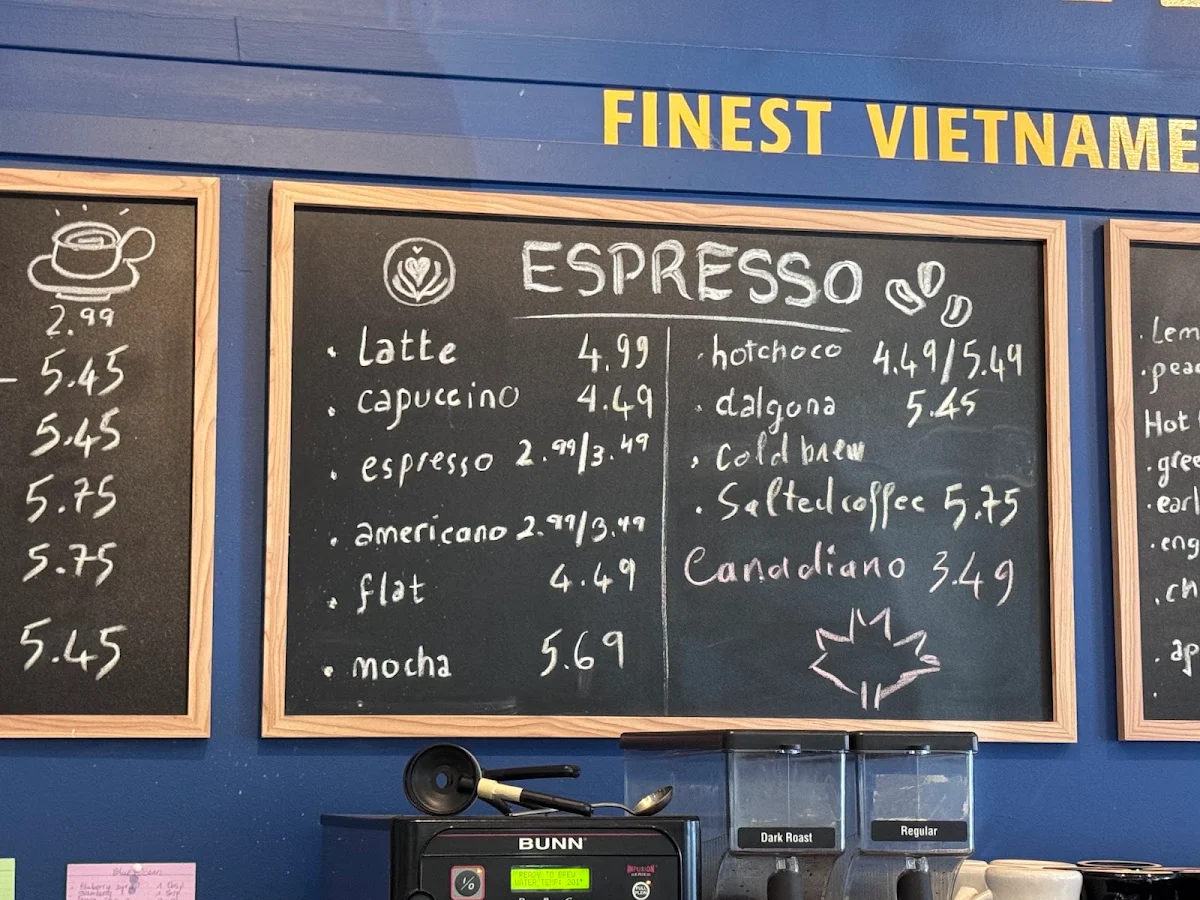 FINEST VIETNAME
2.99
5.45
5.45
5.75
5.75
5.45
ESPRESSO
· Latte 4.99
· capuccino 4.49
· espresso 2.99/3.49
· americano 2.99/3.49
· flat 4.49
· mocha 5.69
· hotchoco 4.49/5.49
· dalgona 5.45
· cold brew
· Salted coffee 5.75
Canadiano 3.49
· Lem
· peac
Hot
· gree
· earl
· eng
· ch
· ap
BUNN
READY TO BREW
WATER TEMP: 201°
Dark Roast
Regular